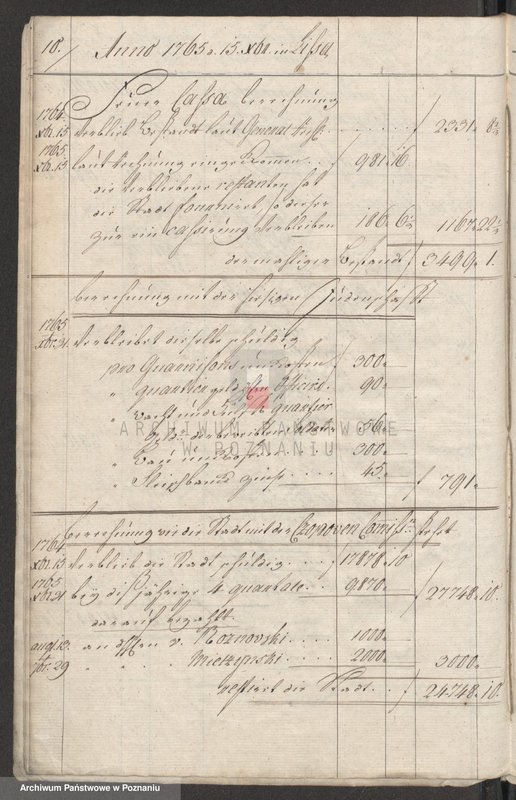 10. Anno 1765 d. 15. Xbr. in Lissa
Feuer Cassa berechnung
1764
Xbr. 15 Verblieb Bestandt laut General . . . . . . f 2331. 8½
1765
Xbr. 15 laut Rechnung eingekommen . . f 981. 16
die verbliebene restanten hat
die Stadt fourniret, so dieser
zur ein cassirung verbleiben 186. 6½ 1167. 22½
der mahliger Bestandt f 3499. 1.
berechnung mit der hiesigen Judenschafft
1765
Xbr. 31. Verbleibet dieselbe schuldig
pro Quarnisons unkosten f 300.
" quartier geld Officirs . 90.
" quartier
56.
" Bau unkosten . . . 300.
" zinse . . . . 45. f 791.
berechnung wie die Stadt mit der Czopowen Comiss: stehet
1764
Xbr. 15 Verblieb die Stadt schuldig . . . f 17878. 10
1765
Xbr. 31 bey diss jährige 4 quartale . . . 9870. f 27748. 10.
darauf bezahlt
aug. 13. an H. v. Roznovski . . . . 1000.
8br. 29 " " Mielzynski . . . . 2000. 3000.
restirt die Stadt . . f 24748. 10.
ARCHIWUM PAŃSTWOWE
W POZNANIU
Archiwum Państwowe w Poznaniu